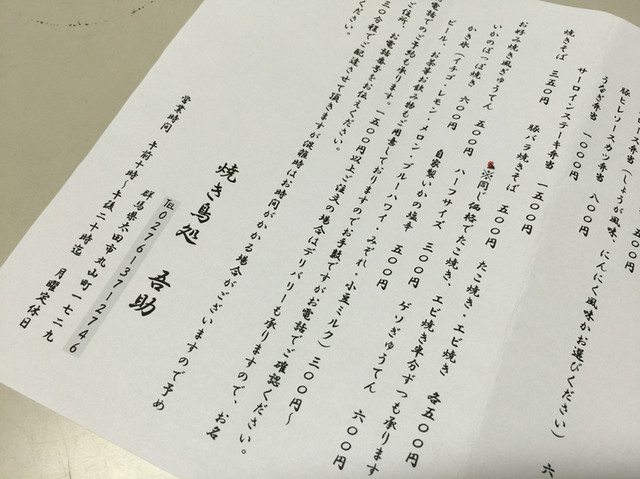 五〇〇円
豚ヒレソースカツ弁当 八〇〇円 六
うなぎ弁当 一〇〇〇円
サーロインステーキ弁当 一五〇〇円 (しょうが風味、にんにく風味かお選びください)
焼きそば 三五〇円 豚バラ焼きそば 五〇〇円
お好み焼き風ぎゅうてん 五〇〇円 たこ焼き・エビ焼き 各五〇〇円
いかのぽっぽ焼き 六〇〇円 ※同じ価格でたこ焼き、エビ焼き半分ずつも承ります
ハーフサイズ 三〇〇円 ゲソぎゅうてん 六〇〇円
自家製いかの塩辛 五〇〇円
かき氷 (イチゴ・レモン・メロン・ブルーハワイ・みぞれ・小豆ミルク) 三〇〇円~
ビール、お茶等お飲み物もご用意しておりますのでお手数ですがお電話でご確認ください。
電話でのご予約も承ります。一五〇〇円以上ご注文の場合はデリバリーも承りますので、お名
ご住所、お電話番号をお伝えください。
三〇分程でご配達させて頂きますが混雑時はお時間がかかる場合がございますので予め
ください。
焼き鳥処 吾助
℡0276-37-2746
群馬県太田市丸山町一七二九
営業時間 午前十時~午後二十時迄 月曜定休日